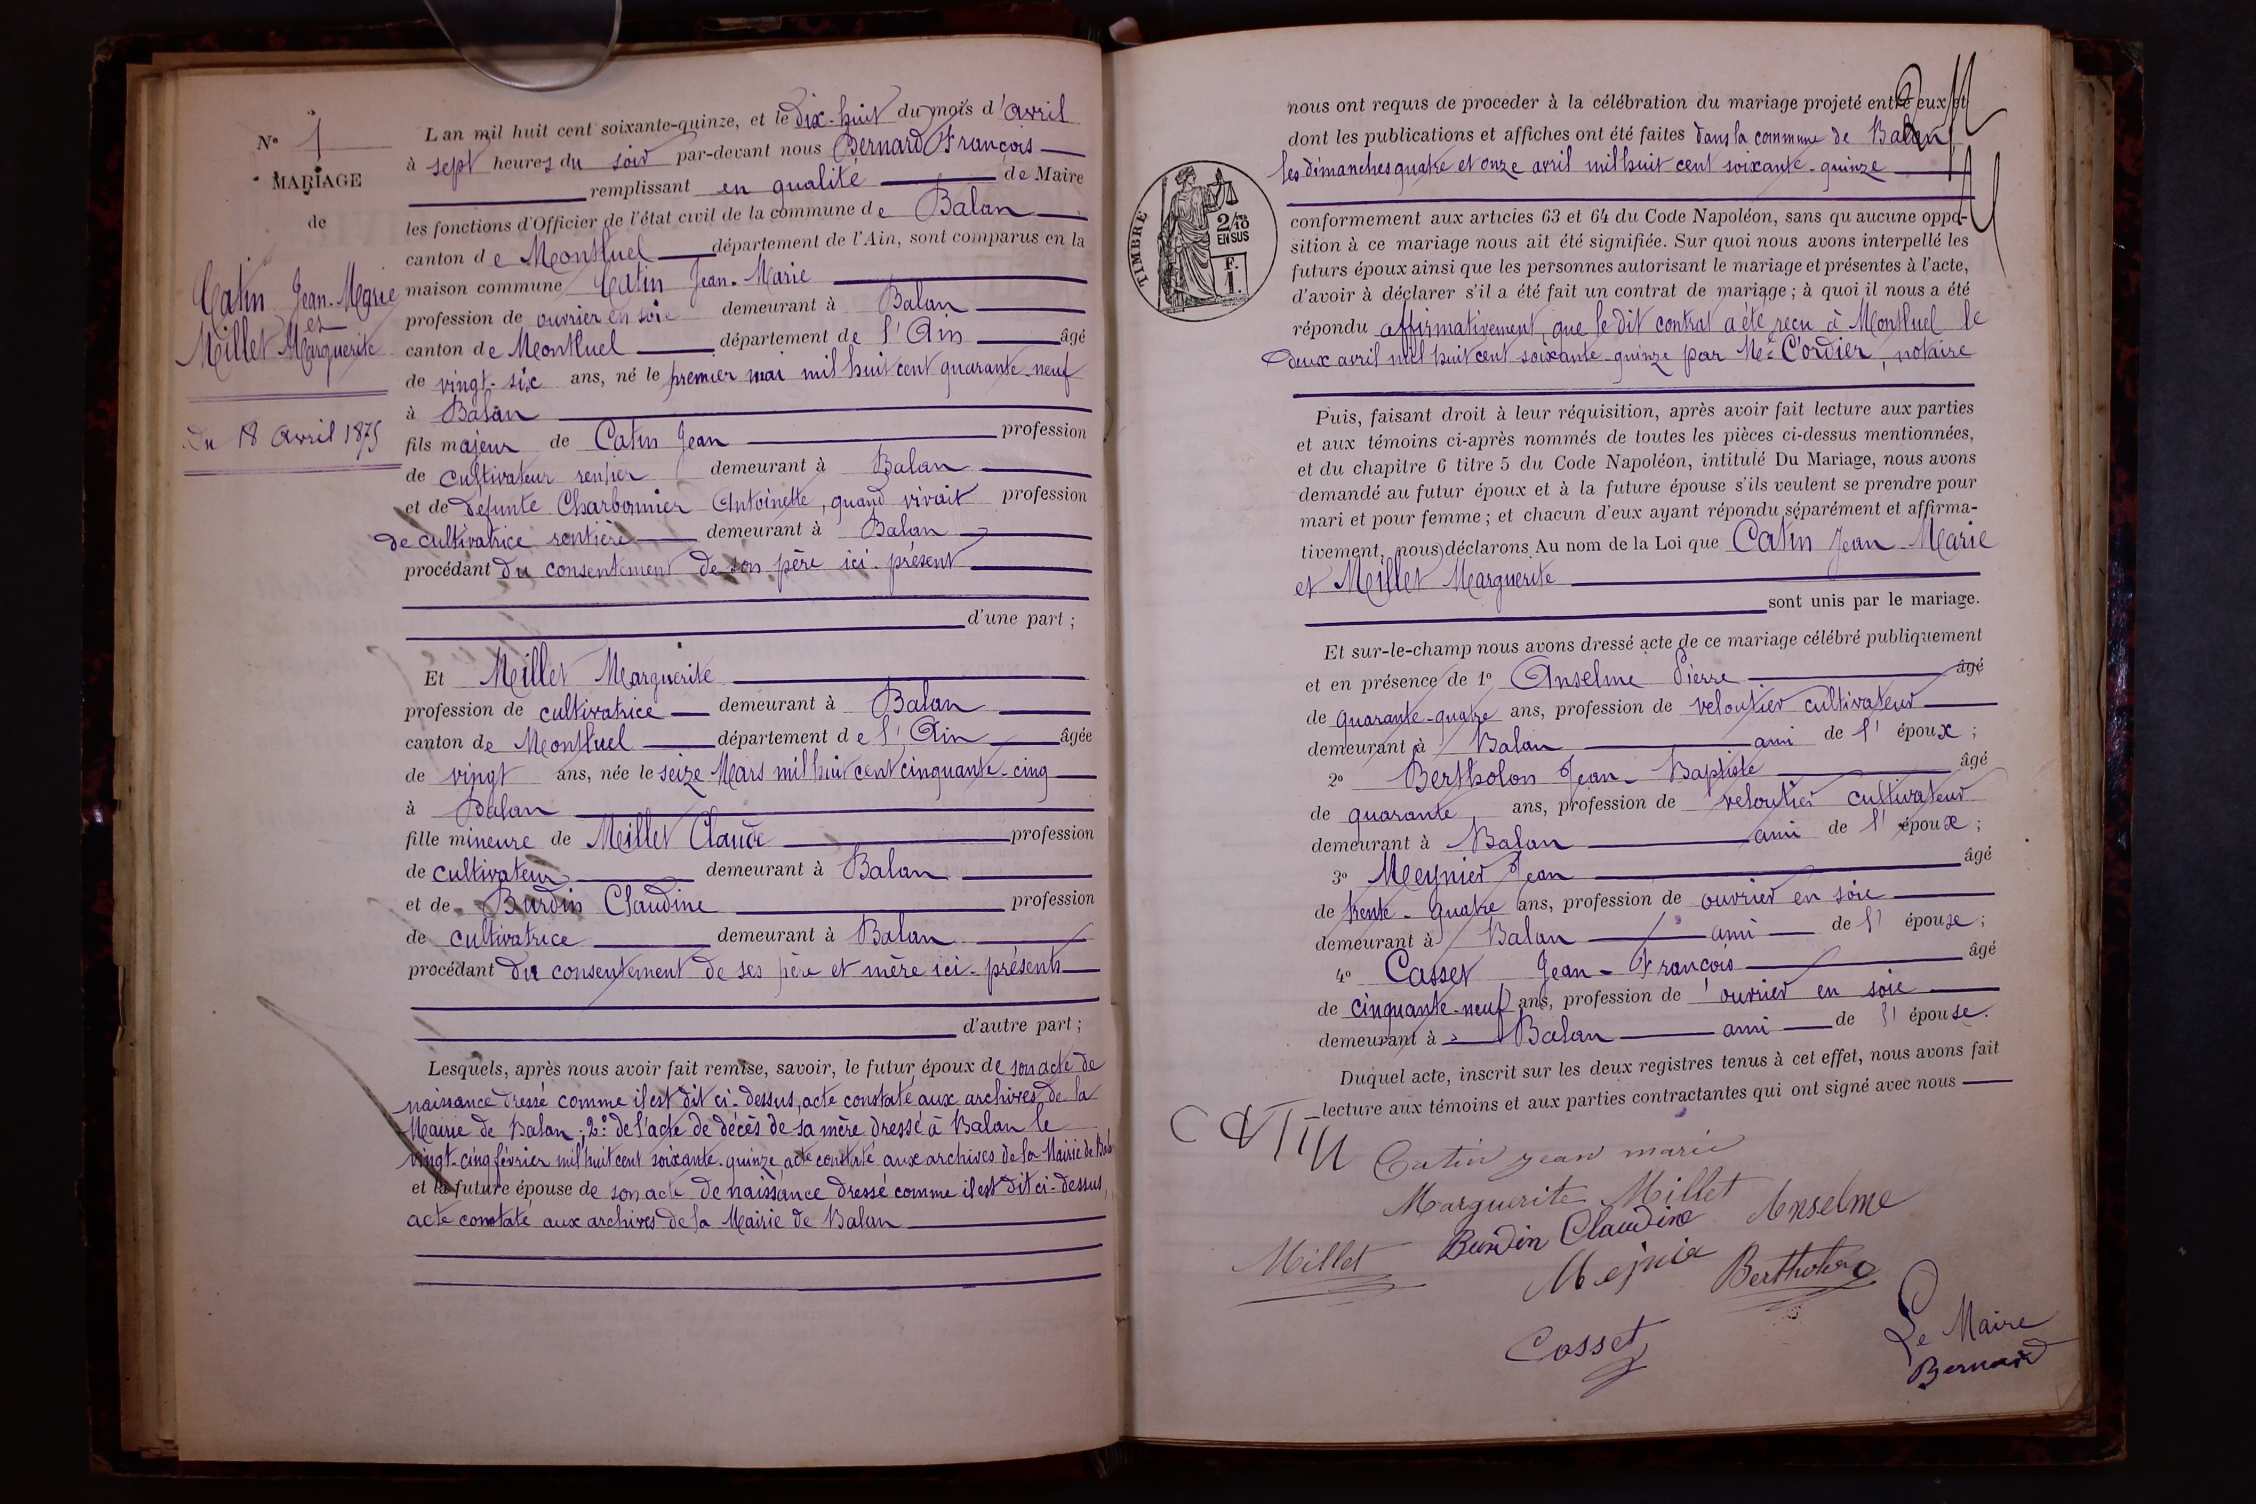 Nº 1
MARIAGE
de
Catin Jean-Marie
et
Millet Marguerite
Du 18 Avril 1875
L'an mil huit cent soixante-quinze, et le dix-huit du mois d'avril
à sept heures du soir par-devant nous Bernard François
remplissant en qualité de Maire
les fonctions d'Officier de l'état civil de la commune de Balan
canton de Montluel département de l'Ain, sont comparus en la
maison commune Catin Jean-Marie
profession de ouvrier en soie demeurant à Balan
canton de Montluel département de l'Ain âgé
de vingt-six ans, né le premier mai mil huit cent quarante-neuf
à Balan
fils majeur de Catin Jean profession
de cultivateur rentier demeurant à Balan
et de défunte Charbonnier Antoinette, quand vivait profession
de cultivatrice rentière demeurant à Balan
procédant du consentement de son père ici-présent
d'une part ;
Et Millet Marguerite
profession de cultivatrice demeurant à Balan
canton de Montluel département de l'Ain âgée
de vingt ans, née le seize Mars mil huit cent cinquante-cinq
à Balan
fille mineure de Millet Claude profession
de cultivateur demeurant à Balan
et de Burdin Claudine profession
de cultivatrice demeurant à Balan
procédant du consentement de ses père et mère ici-présents
d'autre part ;
Lesquels, après nous avoir fait remise, savoir, le futur époux de son acte de
naissance dressé comme il est dit ci-dessus, acte constaté aux archives de la
Mairie de Balan ; 2º de l'acte de décès de sa mère dressé à Balan le
vingt-cinq février mil huit cent soixante-quinze, acte constaté aux archives de la Mairie de Balan
et la future épouse de son acte de naissance dressé comme il est dit ci-dessus,
acte constaté aux archives de la Mairie de Balan
nous ont requis de procéder à la célébration du mariage projeté entre eux et
dont les publications et affiches ont été faites dans la commune de Balan
les dimanches quatre et onze avril mil huit cent soixante-quinze
TIMBRE
2/10
EN SUS
F.
1.
conformément aux articles 63 et 64 du Code Napoléon, sans qu'aucune oppo-
sition à ce mariage nous ait été signifiée. Sur quoi nous avons interpellé les
futurs époux ainsi que les personnes autorisant le mariage et présentes à l'acte,
d'avoir à déclarer s'il a été fait un contrat de mariage ; à quoi il nous a été
répondu affirmativement, que le dit contrat a été reçu à Montluel le
deux avril mil huit cent soixante-quinze par Me Cordier, notaire
Puis, faisant droit à leur réquisition, après avoir fait lecture aux parties
et aux témoins ci-après nommés de toutes les pièces ci-dessus mentionnées,
et du chapitre 6 titre 5 du Code Napoléon, intitulé Du Mariage, nous avons
demandé au futur époux et à la future épouse s'ils veulent se prendre pour
mari et pour femme ; et chacun d'eux ayant répondu séparément et affirma-
tivement, nous déclarons Au nom de la Loi que Catin Jean-Marie
et Millet Marguerite
sont unis par le mariage.
Et sur-le-champ nous avons dressé acte de ce mariage célébré publiquement
et en présence de 1º Anselme Pierre âgé
de quarante-quatre ans, profession de veloutier cultivateur
demeurant à Balan ami de l'époux ;
2º Bertholon Jean-Baptiste âgé
de quarante ans, profession de veloutier cultivateur
demeurant à Balan ami de l'époux ;
3º Meynier Jean âgé
de trente-quatre ans, profession de ouvrier en soie
demeurant à Balan ami de l'épouse ;
4º Casset Jean-François âgé
de cinquante-neuf ans, profession de ouvrier en soie
demeurant à Balan ami de l'épouse.
Duquel acte, inscrit sur les deux registres tenus à cet effet, nous avons fait
lecture aux témoins et aux parties contractantes qui ont signé avec nous
CATIN
Catin jean marie
Marguerite Millet
Millet Burdin Claudine Anselme
Bertholon
Cosset
Le Maire
Bernard